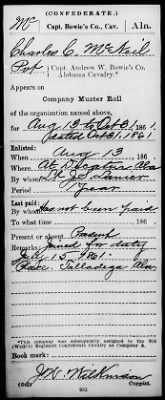 (CONFEDERATE.)
Mc Capt. Bowie's Co., Cav. Ala.
Charles C. McNeil
Pvt Capt. Andrew W. Bowie's Co.
Alabama Cavalry.*
Appears on
Company Muster Roll
of the organization named above,
for Aug 13 to Oct 31, 1861.
dated Oct 31, 1861
Enlisted:
When 13 , 186
Where Ala
By whom
Period 1 year
Last paid:
By whom Has not been paid
To what time , 186
Present or absent Present
Remarks: Joined for duty
15 1861.
Talladega Ala
*This company was subsequently assigned to the 8th
Regiment Confederate Cavalry as Company
Book mark:
Copyist.